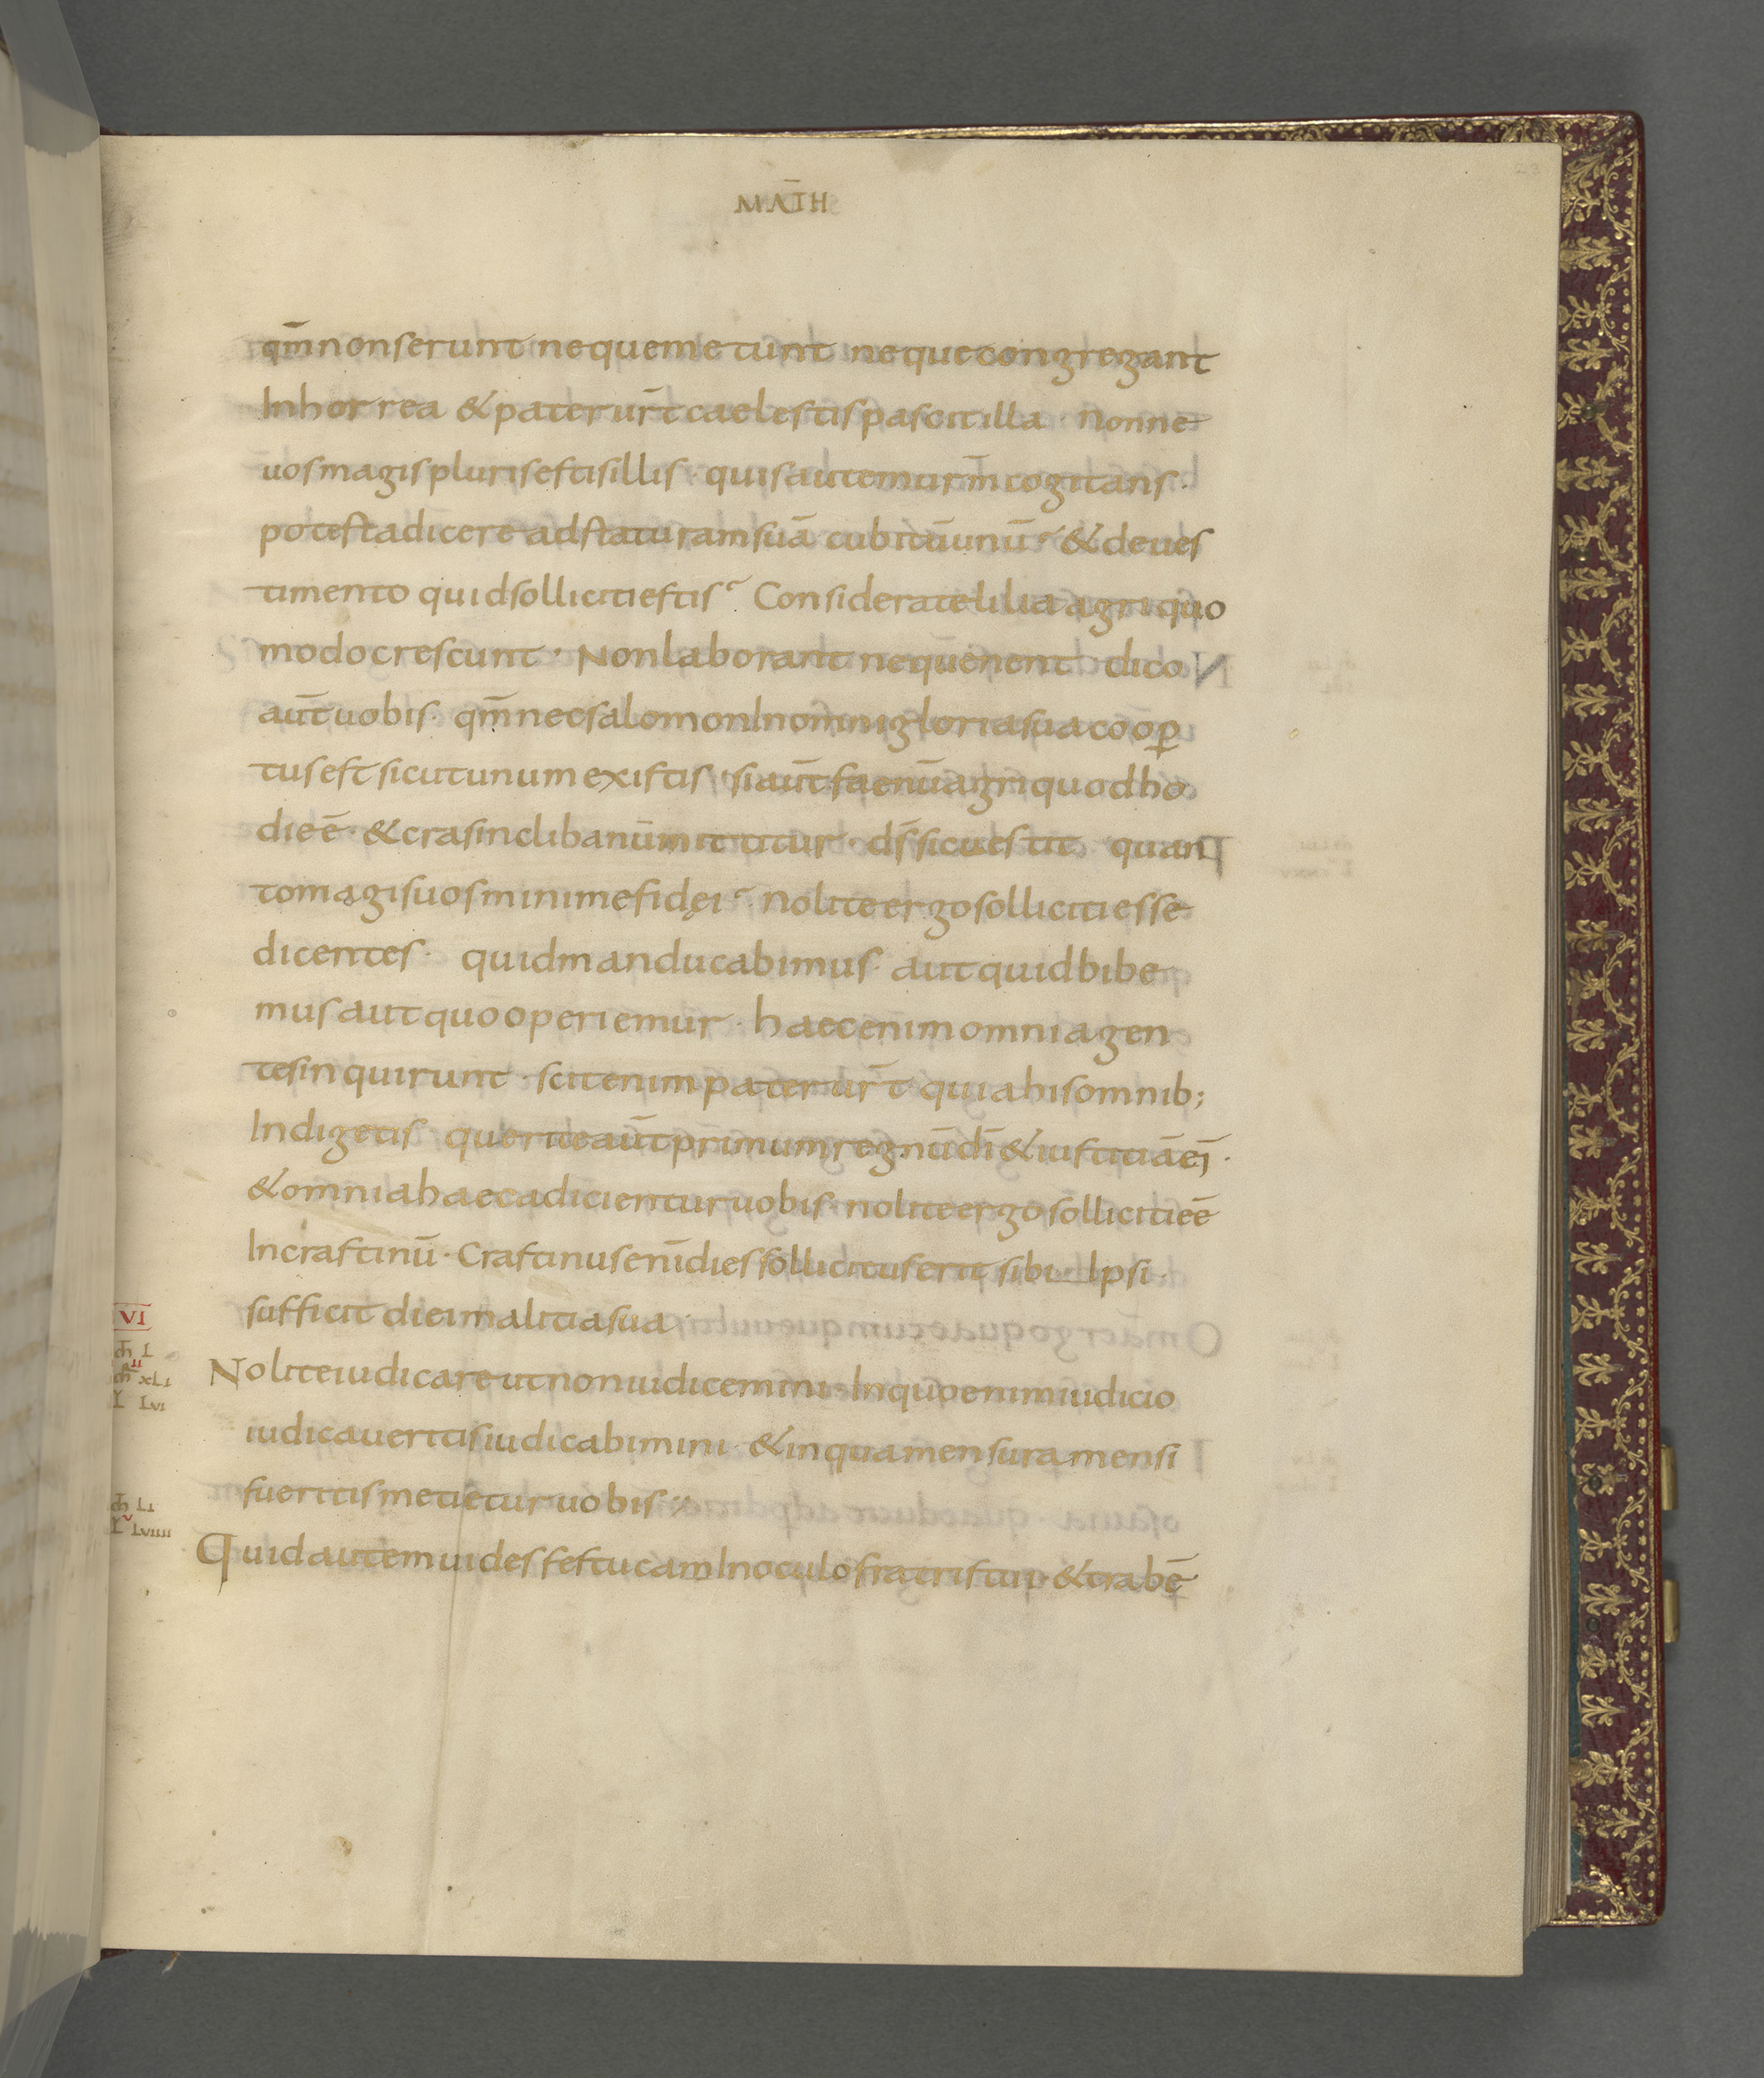 MAT̄H
qm̄ non serunt neque metunt neque congregant
In horrea & pater ur̄t caelestis pascit illa · Nonne
uos magis pluris estis illis · quis autem ur̄m cogitans ·
potest adicere ad staturam suā cubitū unū · & de ues
timento quid solliciti estis · Considerate lilia agri quo
modo crescunt · Non laborant neque nent · dico
aūt uobis · qm̄ nec salomon In omni gloria sua coop̲
tus est sicut unum ex istis · si aūt faenū agri quod ho
die ē · & cras in clibanum mittitur · dS̄ sic uestit quan
to magis uos minime fidęi · Nolite ergo solliciti esse
dicentes · quid manducabimus aut quid bibe
mus aut quo operiemur · haec enim omnia gen
tes inquirunt · scit enim pater ur̄t quia his omnib;
Indigetis querite aūt primum regnū dī & iustitiā eī ·
& omnia haec adicientur uobis · nolite ergo solliciti eē
In crastinū · Crastinus enī dies sollicitus erit sibi Ipsi ·
sufficit diei malitia sua ·
VI
m̄ L
m̄ II xLI
L LVI
Nolite iudicare ut non iudicemini · In quo enim iudicio
iudicaueritis iudicabimini · & in qua mensura mensi
fueritis metietur uobis ·
m̄ LI
L V LVIIII
Quid autem uides festucam In oculo fratris tui · & trabē